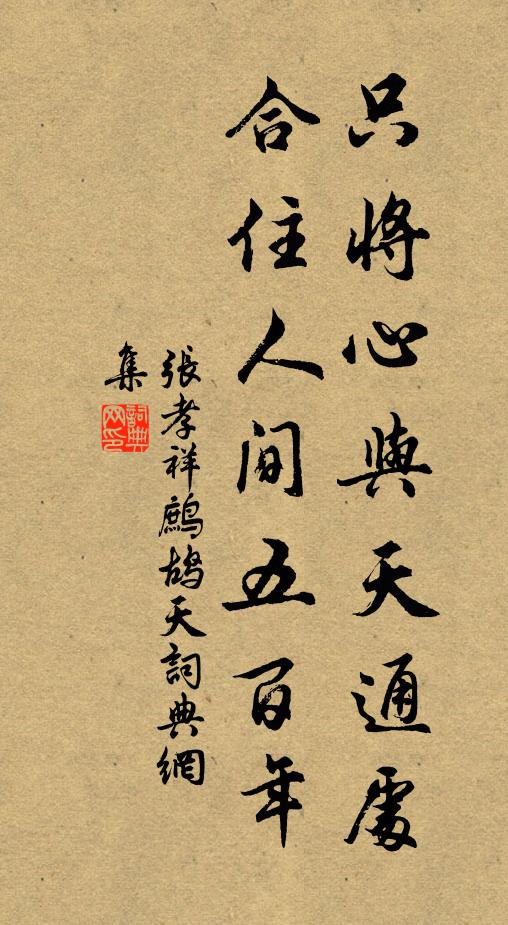 只將心與天通處
合住人間五百年
張孝祥鷓鴣天詞典網
集
詞典网印